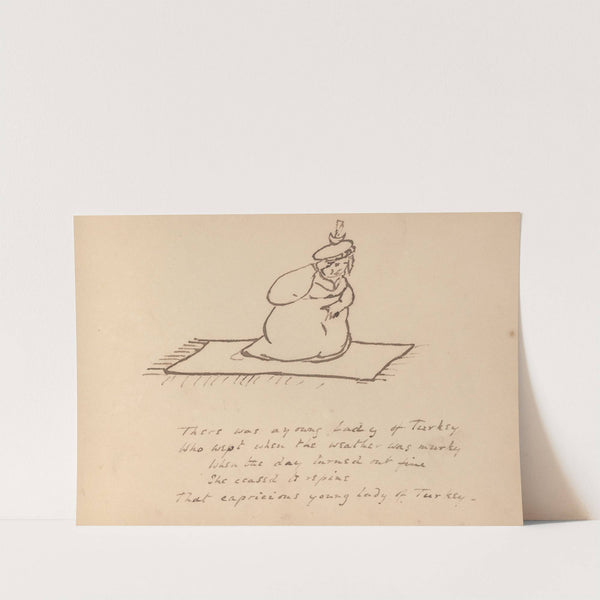 There was a young Lady of Turkey
Who wept when the weather was murky
When the day turned out fine
She ceased to repine
That capricious young Lady of Turkey -